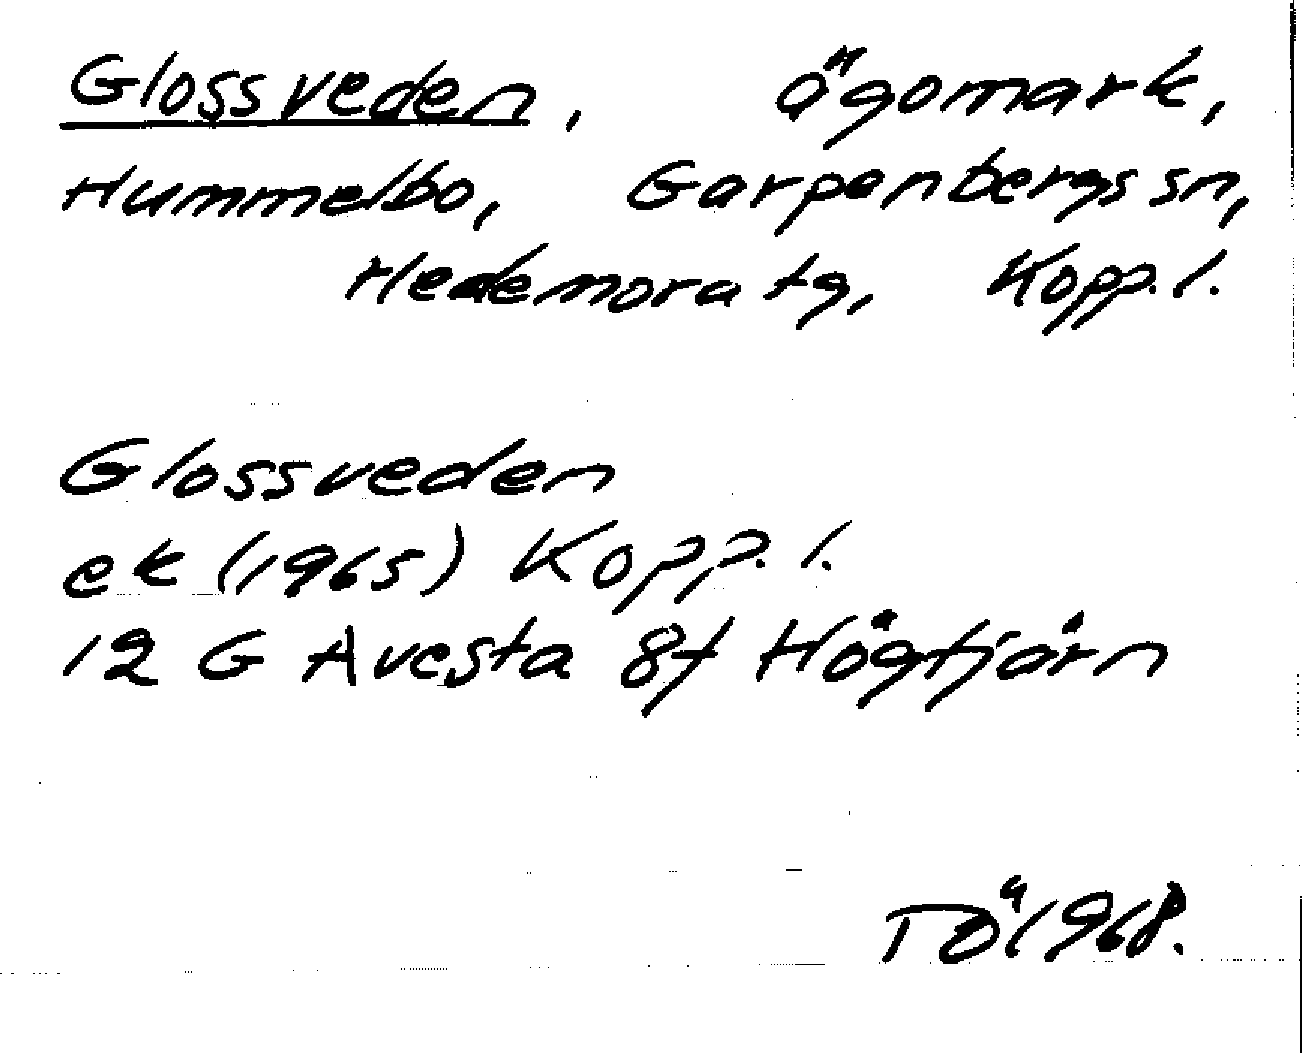 Glossveden, ägomark,
Hummelbo, Garpenbergs sn,
Hedemora tg, Kopp. l.
Glossveden
ek (1965) Kopp. l.
12 G Avesta 8f Högtjärn
TÖ 1968.